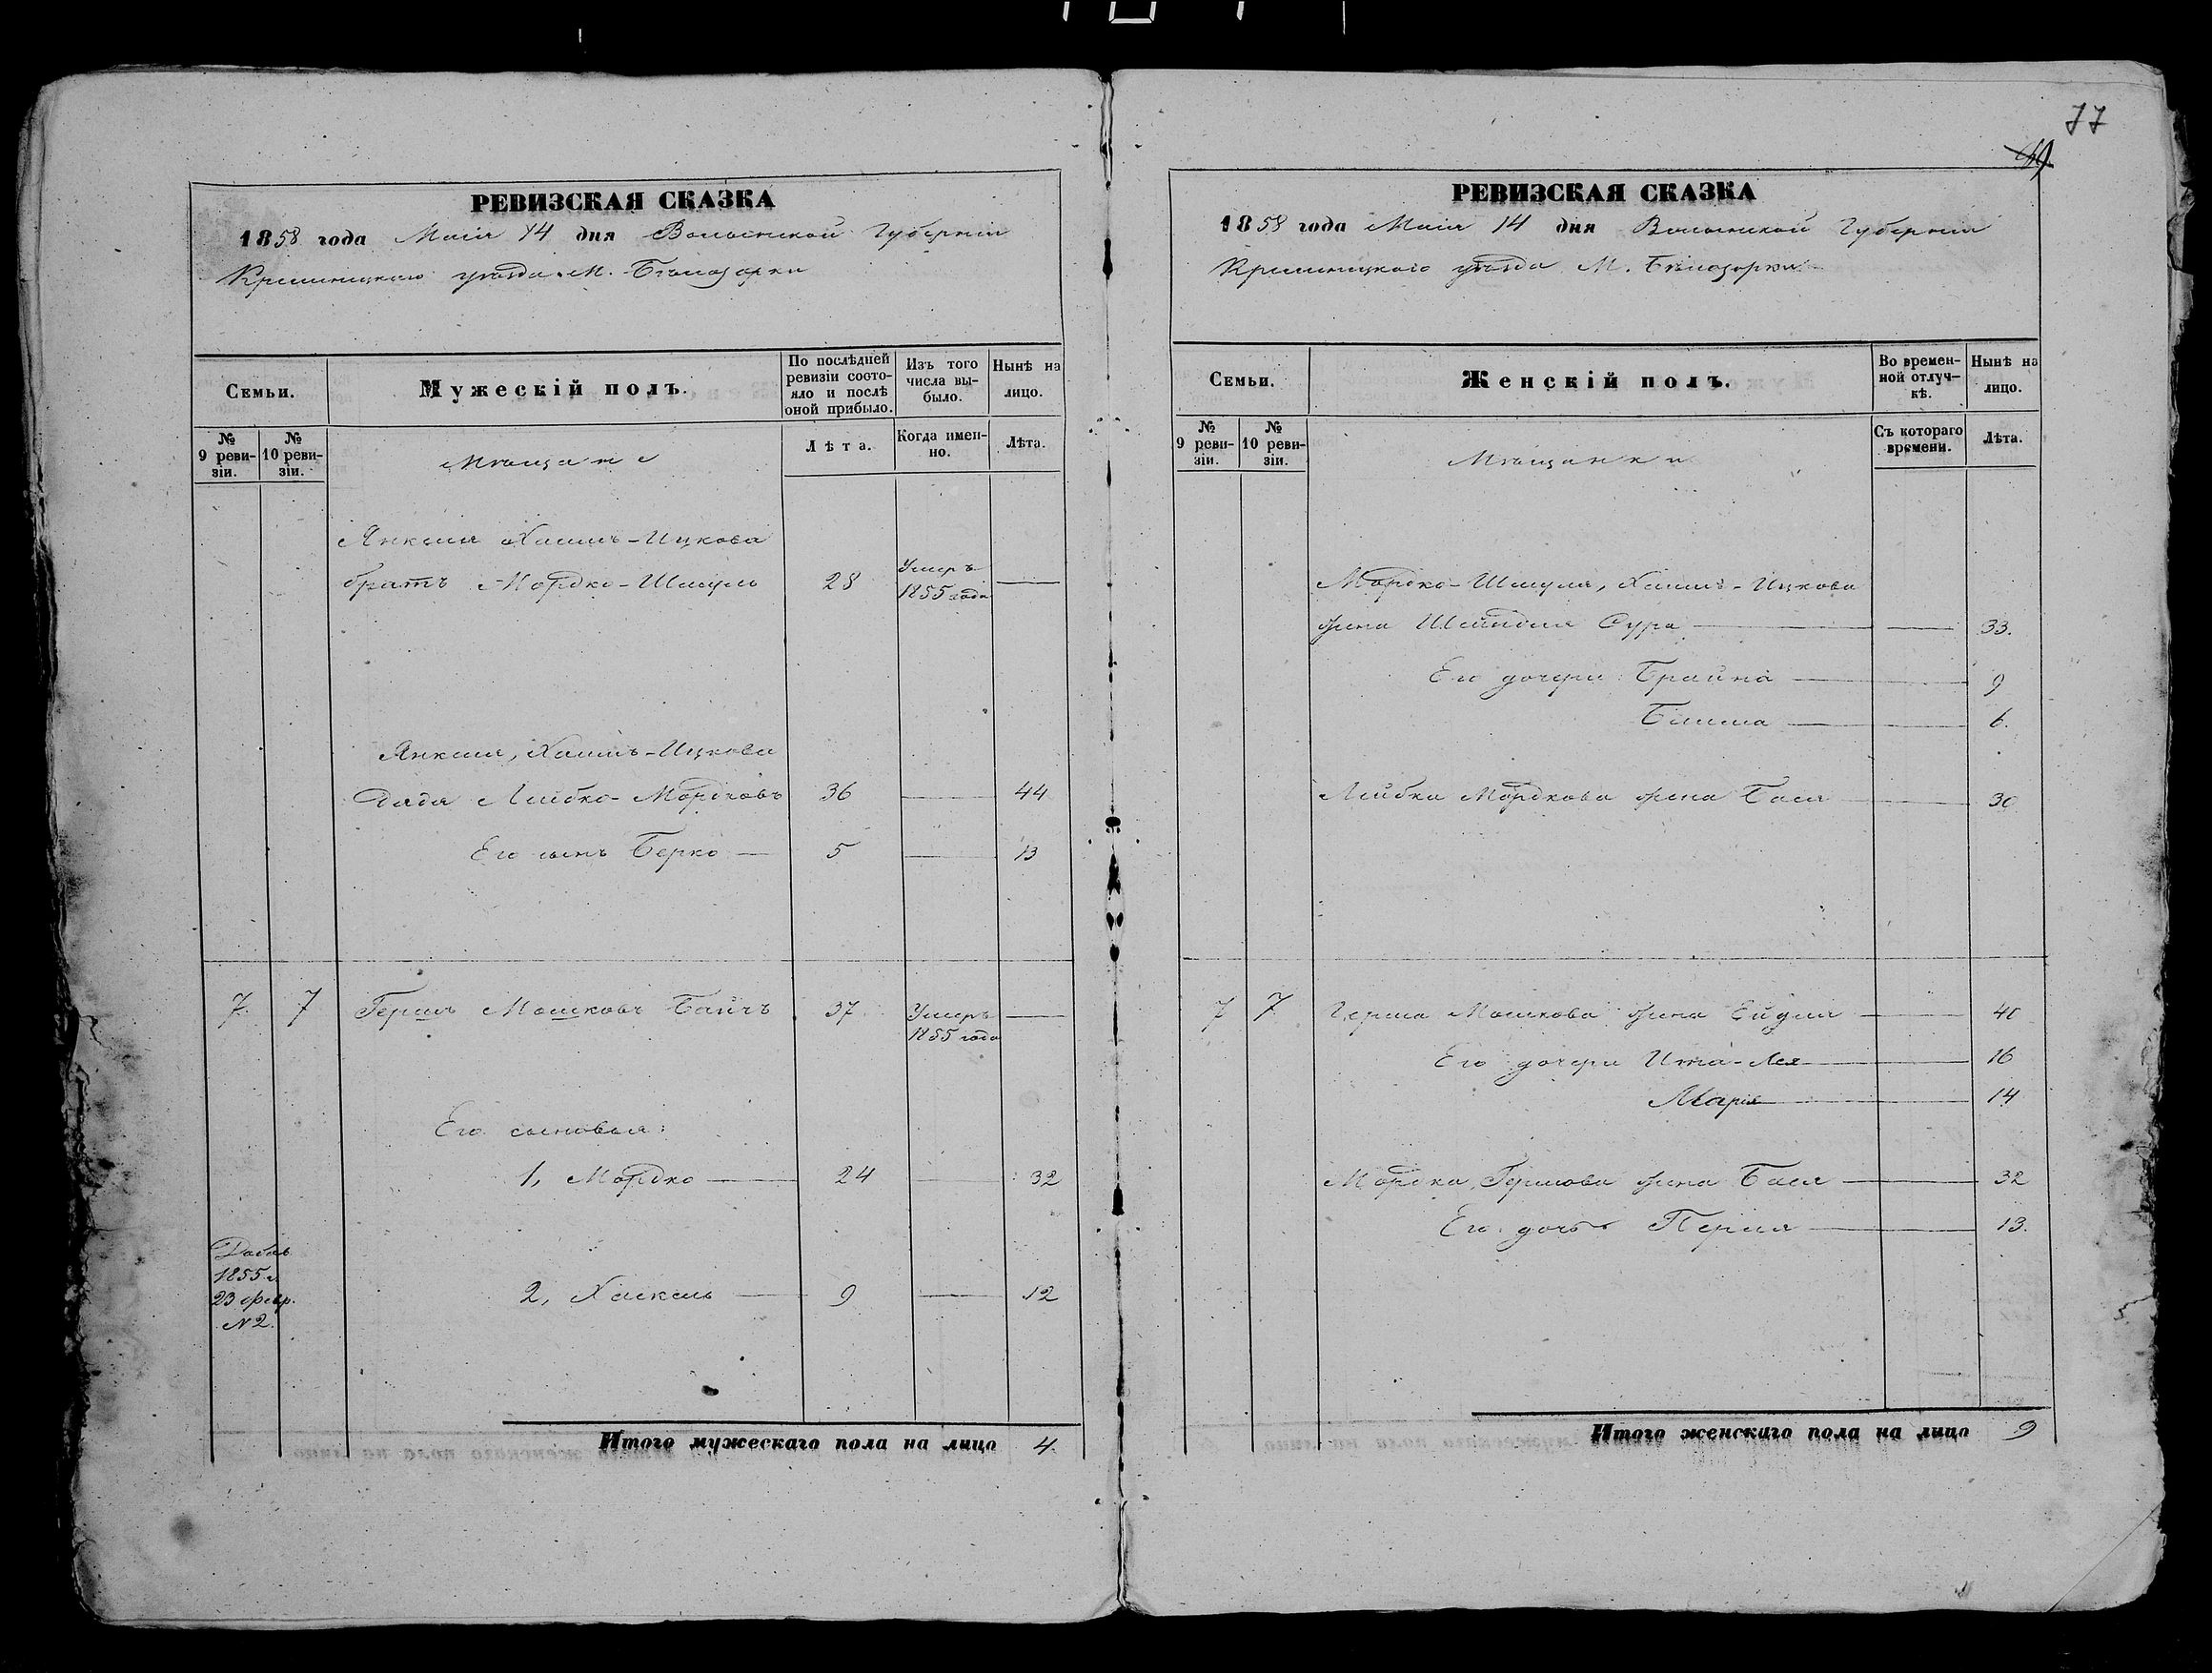 77
69
РЕВИЗСКАЯ СКАЗКА
1858 года Маія 14 дня Волынской Губерніи
Кременецкаго уѣзда М. Бѣлозорки
Семьи.
Мужескій полъ.
По послѣдней ревизіи состояло и послѣ оной прибыло.
Изъ того числа выбыло.
Нынѣ на лицо.
№ 9 ревизіи.
№ 10 ревизіи.
Мѣщане
Лѣта.
Когда именно.
Лѣта.
Янкеля Хаимъ-Ицкова
братъ Мордко-Шмуль 28 Умеръ 1855 года —
Янкеля, Хаимъ-Ицкова
дядя Лейбко-Мордковъ 36 — 44
Его сынъ Берко — 5 — 13
7. 7 Гершъ Мошковъ 37 Умеръ 1855 года —
Его сыновья:
1, Мордко — 24 — 32
Добав. 1855 г. 23 февр. № 2.
2, Хаскель — 9 — 12
Итого мужескаго пола на лицо 4.
РЕВИЗСКАЯ СКАЗКА
1858 года Маія 14 дня Волынской Губерніи
Кременецкаго уѣзда М. Бѣлозорки
Семьи.
Женскій полъ.
Во временной отлучкѣ.
Нынѣ на лицо.
№ 9 ревизіи.
№ 10 ревизіи.
Мѣщанки
Съ котораго времени.
Лѣта.
Мордко-Шмуля, Хаимъ-Ицкова
жена Шейндля Сура — — 33.
Его дочери: Брайна — 9
6.
Лейбки Мордкова жена Бася — 30
7 7 Герша Мошкова жена Ейдля — 40
Его дочери Ита-Лея — 16
Марія — 14
Мордка Гершова жена Бася — 32
Его дочь Перля — 13.
Итого женскаго пола на лицо 9